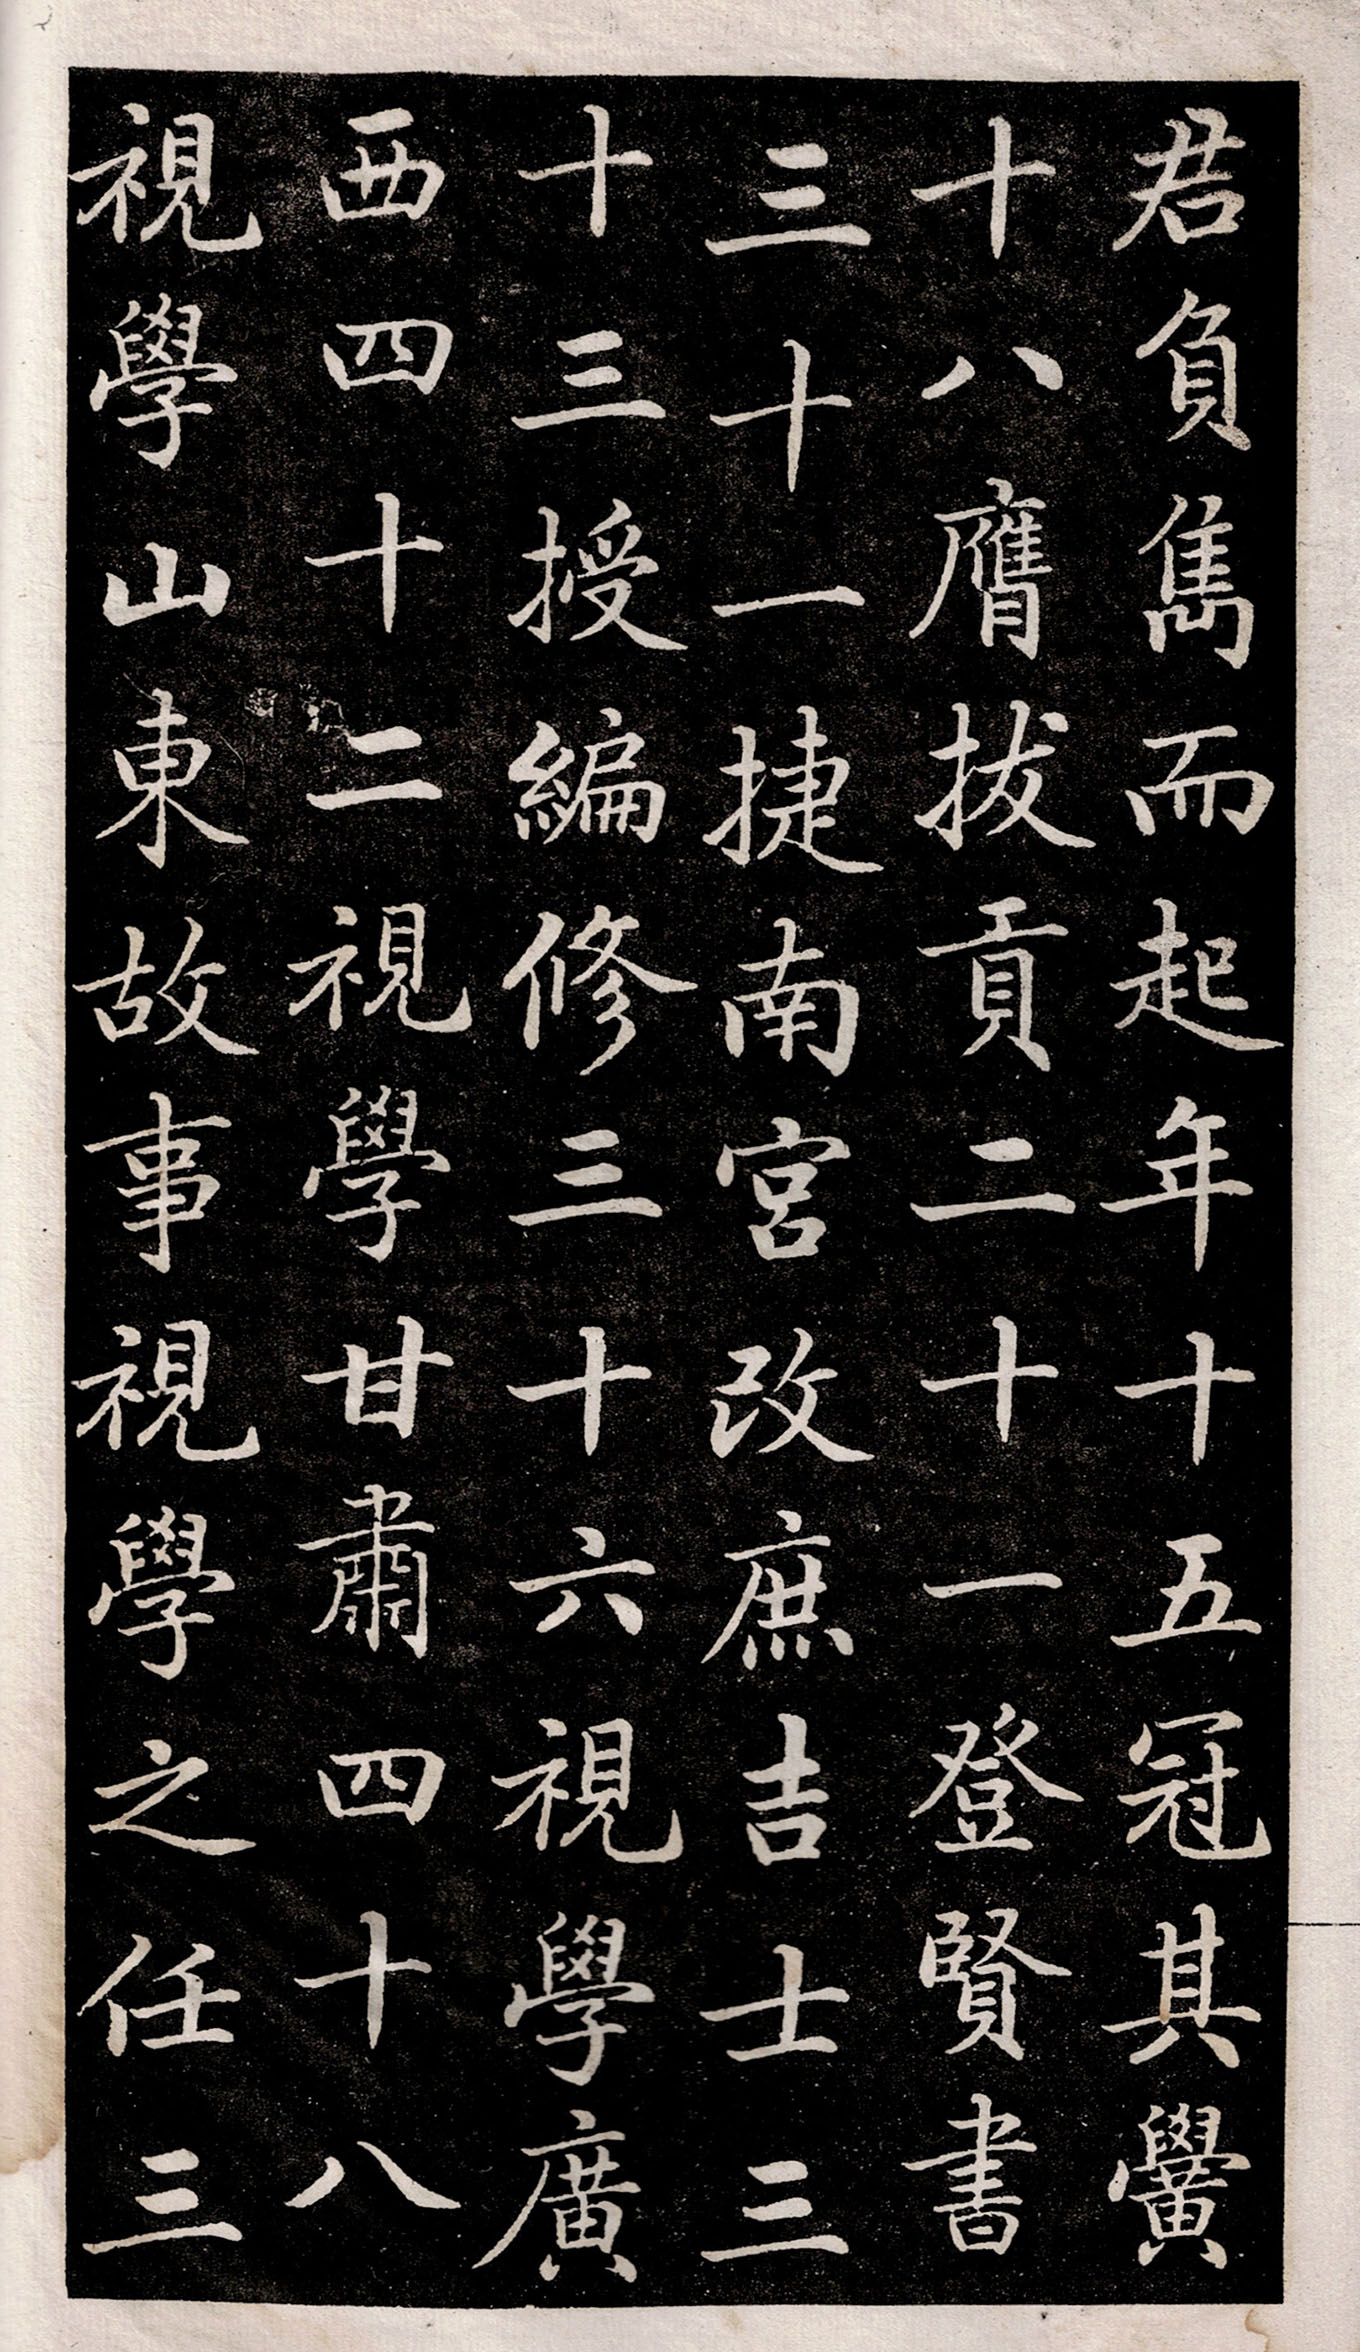 君負雋而起年十五冠其黌
十八膺拔貢二十一登賢書
三十一捷南宮改庶吉士三
十三授編修三十六視學廣
西四十二視學甘肅四十八
視學山東故事視學之任三